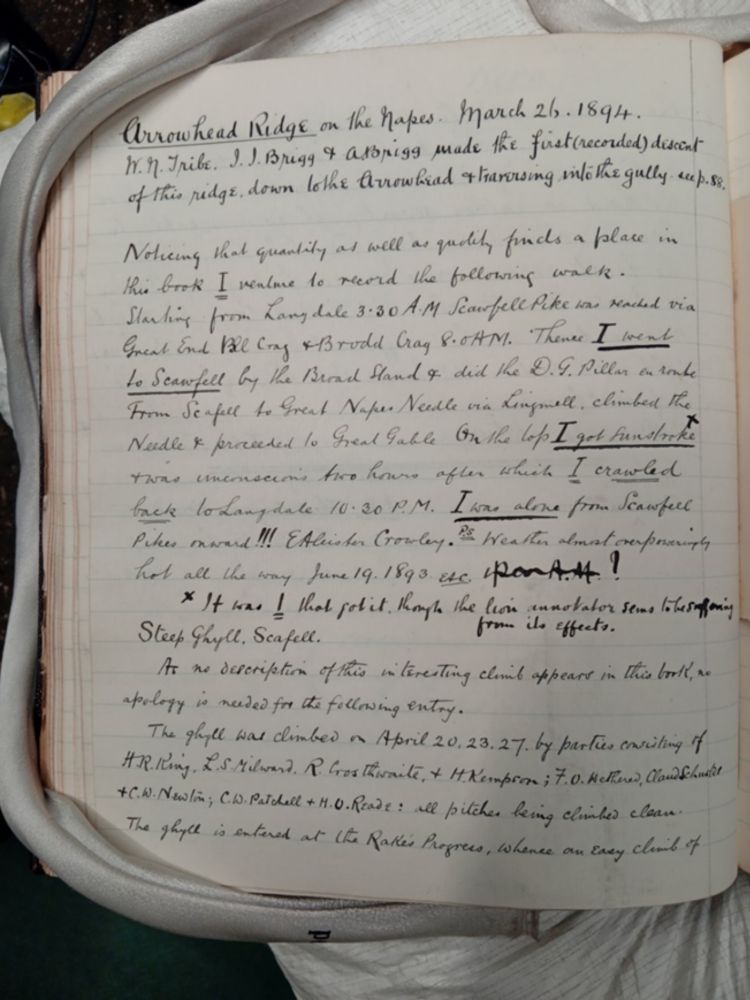 Arrowhead Ridge on the Napes. March 26. 1894.
W. N. Tribe. J. J. Brigg & A Brigg made the first (recorded) descent
of this ridge, down to the Arrowhead & traversing into the gully. see p. 88.
Noticing that quantity as well as quality finds a place in
this book I venture to record the following walk.
Starting from Langdale 3.30 A.M Scawfell Pike was reached via
Great End Ill Crag & Broad Crag 8.0 AM. Thence I went
to Scawfell by the Broad Stand & did the D.G. Pillar en route
From Scafell to Great Napes Needle via Lingmell, climbed the
Needle & proceeded to Great Gable On the top I got sunstroke x
& was unconscious two hours after which I crawled
back to Langdale 10.30 P.M. I was alone from Scawfell
Pikes onward!!! E Aleister Crowley. P.S Weather almost overpoweringly
hot all the way June 19. 1893 etc. !
x It was I that got it, though the lion annotator sems to be suffering
from its effects.
Steep Ghyll, Scafell.
As no description of this interesting climb appears in this book, no
apology is needed for the following entry.
The ghyll was climbed on April 20, 23, 27, by parties consisting of
H.R. King, L.S. Milward, R. Crosthwaite, & H. Kempson; F.O. Wethered, Claud Schuster
& C.W. Newton; C.W. Patchell & H.V. Reade: all pitches being climbed clean.
The ghyll is entered at the Rake's Progress, whence an easy climb of